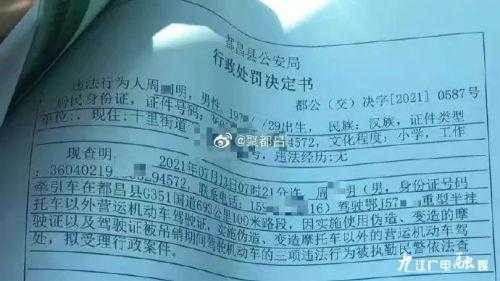 都昌县公安局
行政处罚决定书
都公（交）决字[2021] 0587号
违法行为人周 明，男性，197 /29出生，民族：汉族，证件类型
居民身份证，证件号码：
单位：，现住：十里街道 1572，文化程度：小学，工作
号，违法经历：无
@聚都昌
现查明 2021年07月13日07时21分许，周 明（男，身份证号码
36040219 94572，联系电话 15 16）驾驶鄂 157 重型半挂
牵引车在都昌县G351国道695公里100米路段，因实施使用伪造、变造的摩
托车以外营运机动车驾驶证，实施伪造、变造摩托车以外的营运机动车驾
驶证以及驾驶证被吊销期间驾驶机动车的三项违法行为被执勤民警依法查
处，拟受理行政案件。
九江广电融媒